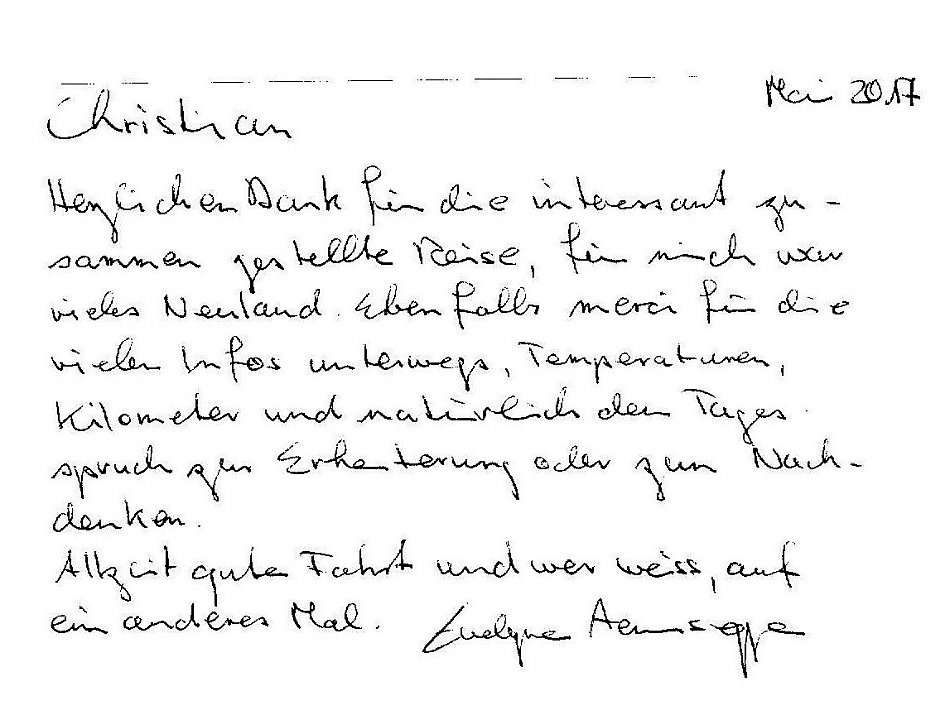 Mai 2017
Christian
Herzlichen Dank für die interessant zu-
sammen gestellte Reise, für mich war
vieles Neuland. Ebenfalls merci für die
vielen Infos unterwegs, Temperaturen,
Kilometer und natürlich den Tages
spruch zur Erheiterung oder zum Nach-
denken.
Allzeit gute Fahrt und wer weiss, auf
ein anderes Mal. Evelyne